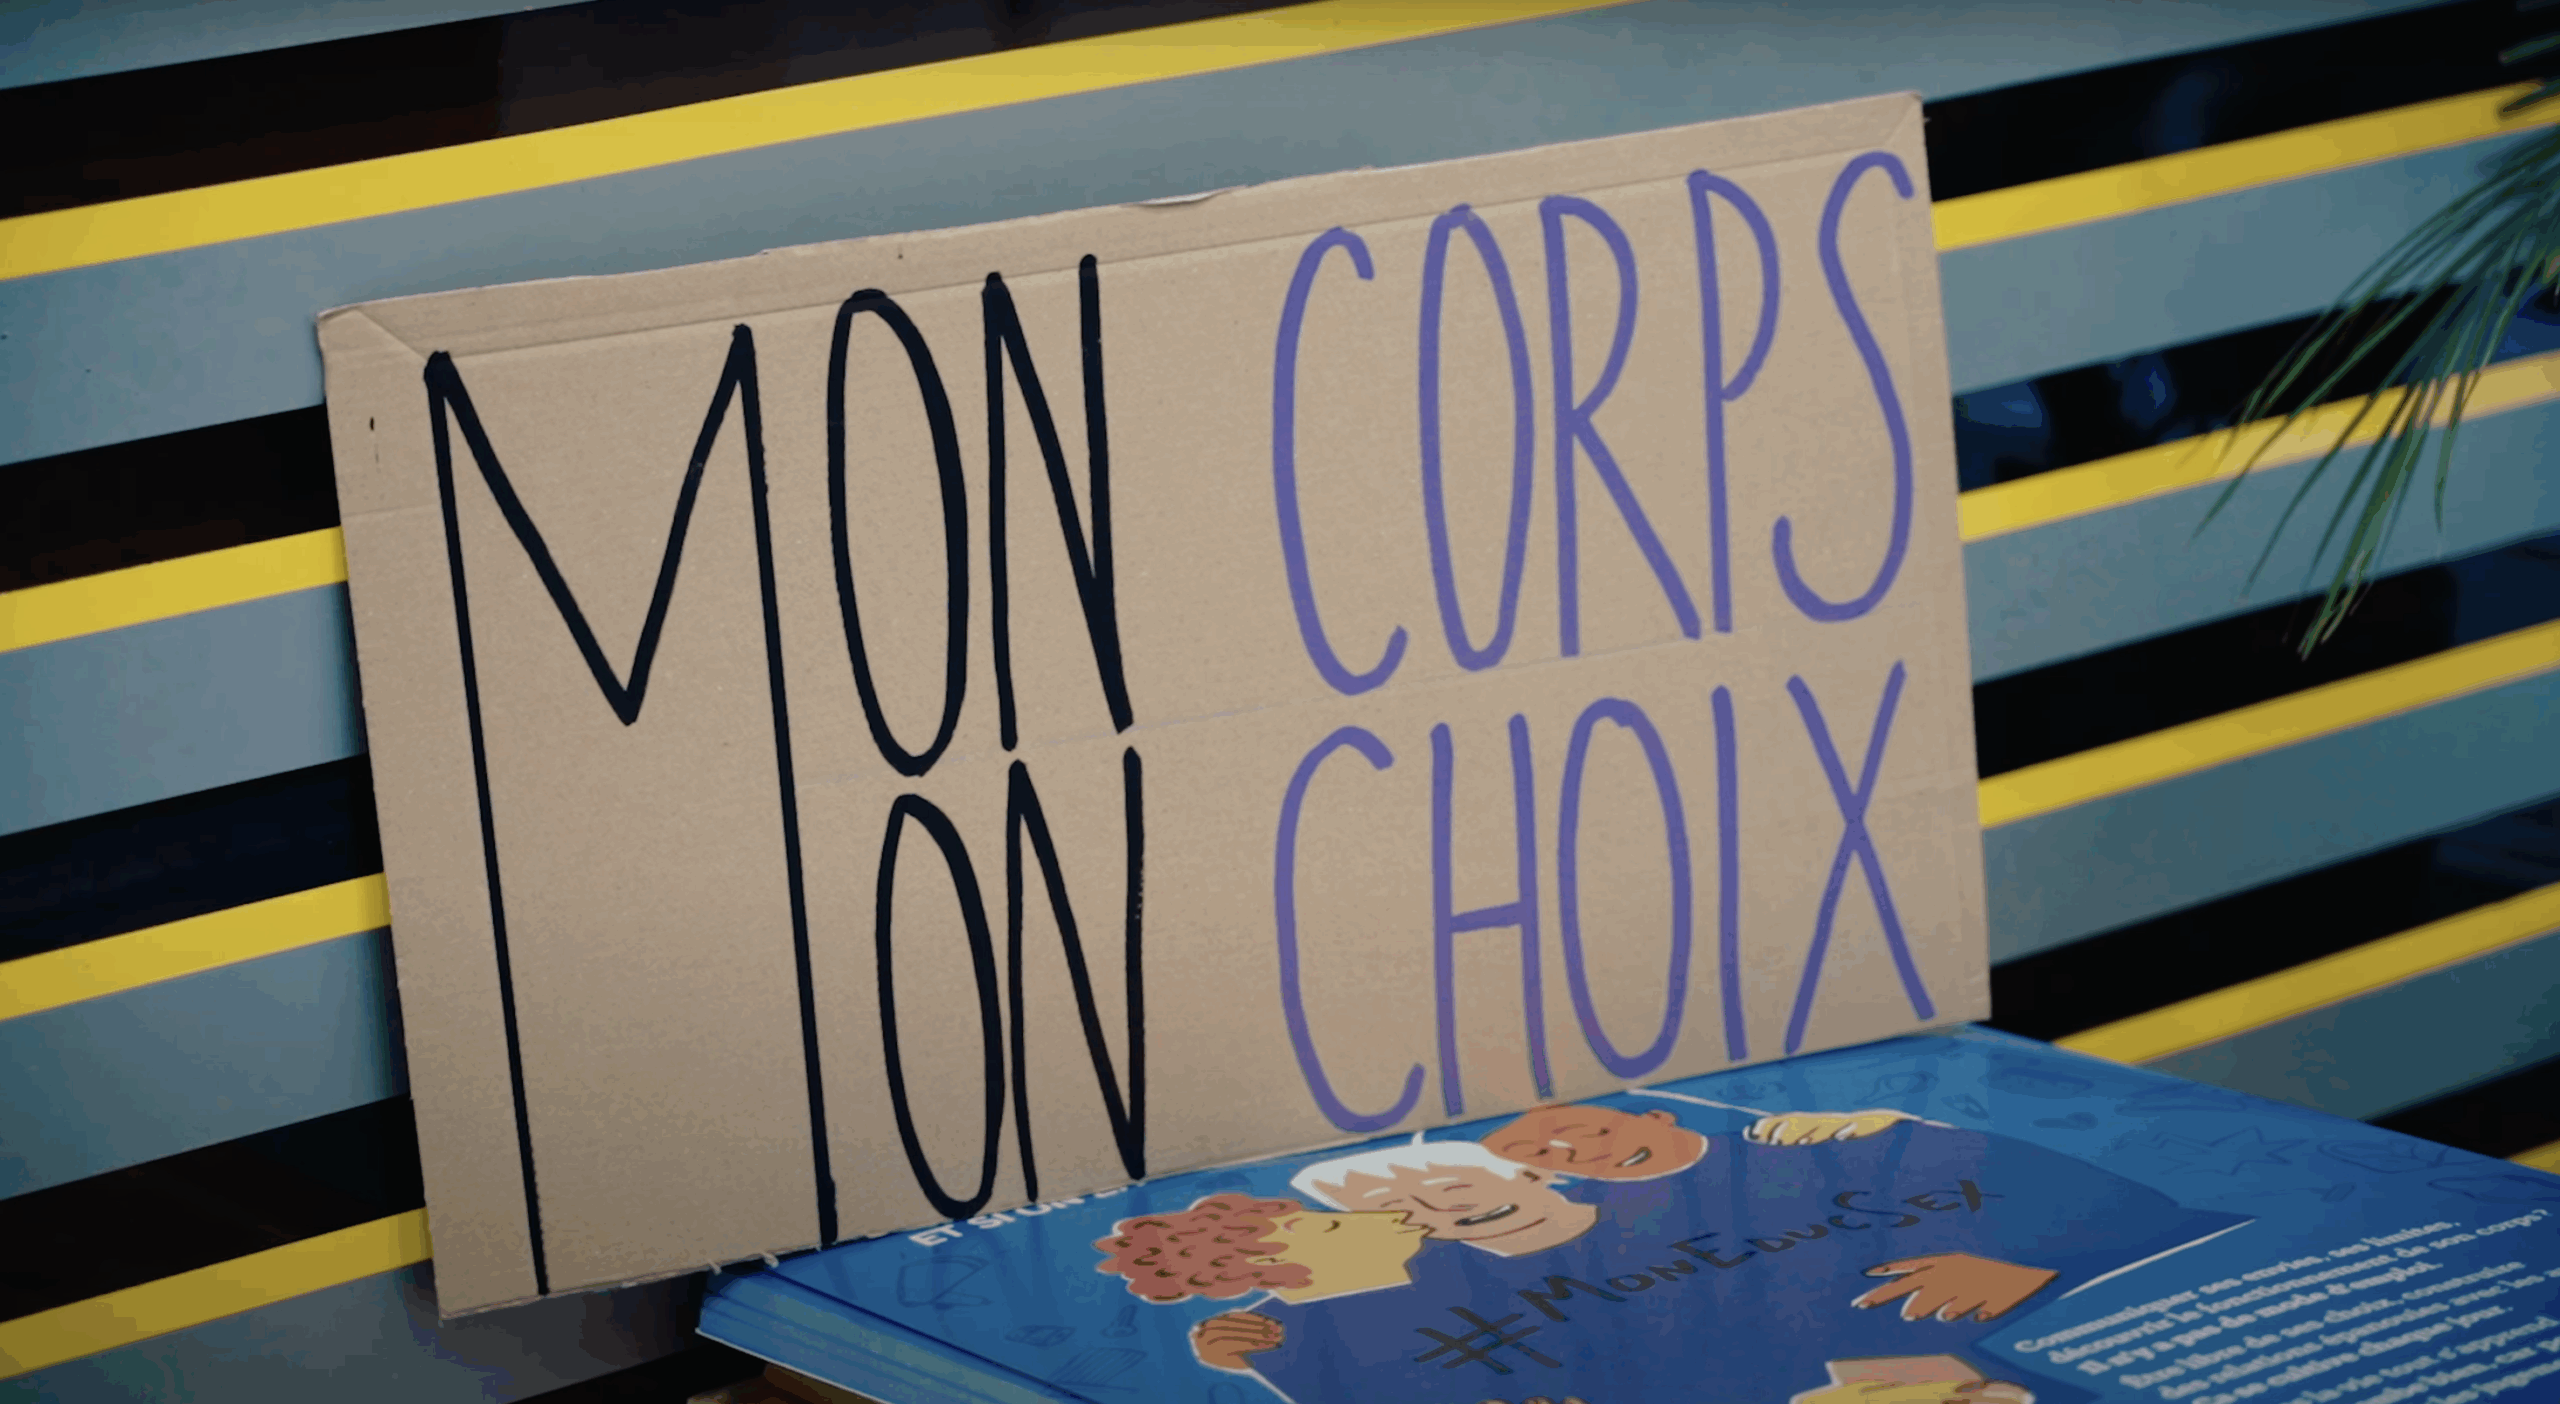 MON CORPS
MON CHOIX
ET SI ON
#MONEDUCSEX
Communiquer ses envies, ses limites,
découvrir le fonctionnement de son corps ?
Il n'y a pas de mode d'emploi.
Être libre de ses choix, construire
des relations épanouies avec les
Ça se cultive chaque jour.
la vie tout s'apprend